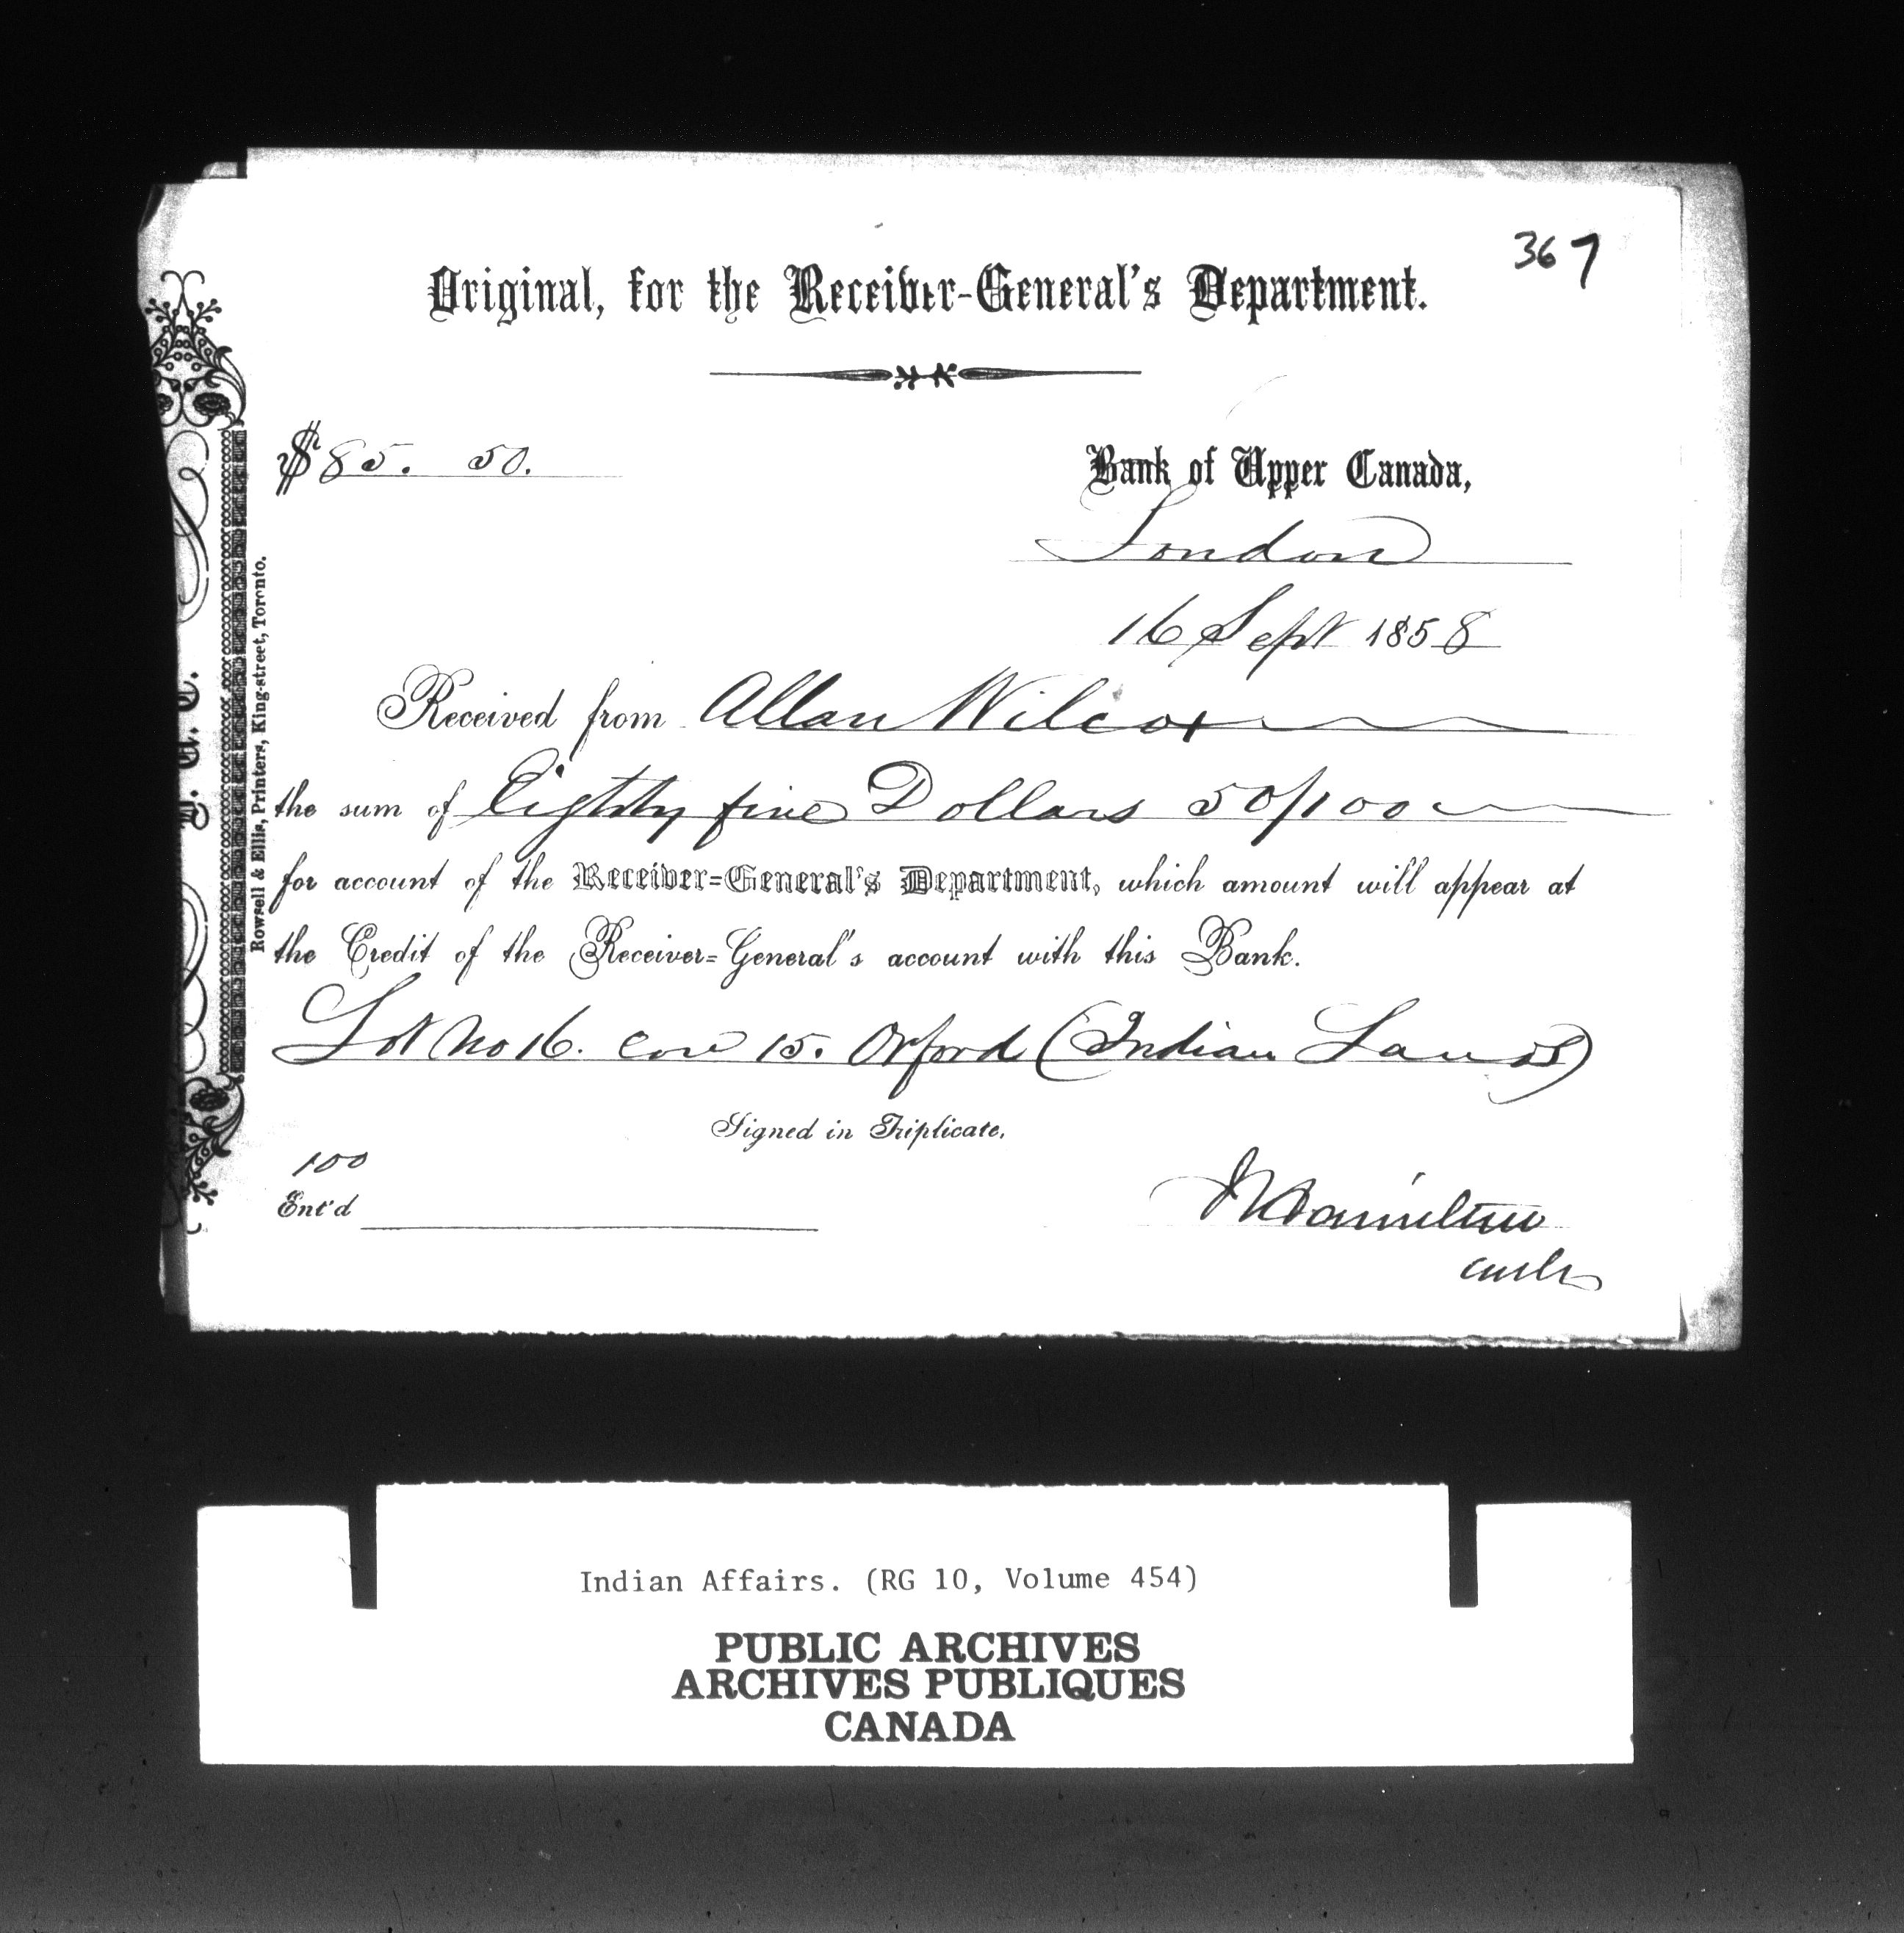 367
Original, for the Receiver-General's Department.
$85. 50.
Bank of Upper Canada,
London
16 Sept 1858
Received from Allan Wilcox
the sum of Eighty five Dollars 50/100
for account of the Receiver-General's Department, which amount will appear at
the Credit of the Receiver-General's account with this Bank.
Lot No 16. Con 15. Orford (Indian Lands)
Signed in Triplicate.
100
Ent'd
Hamilton
Rowsell & Ellis, Printers, King-street, Toronto.
Indian Affairs. (RG 10, Volume 454)
PUBLIC ARCHIVES
ARCHIVES PUBLIQUES
CANADA